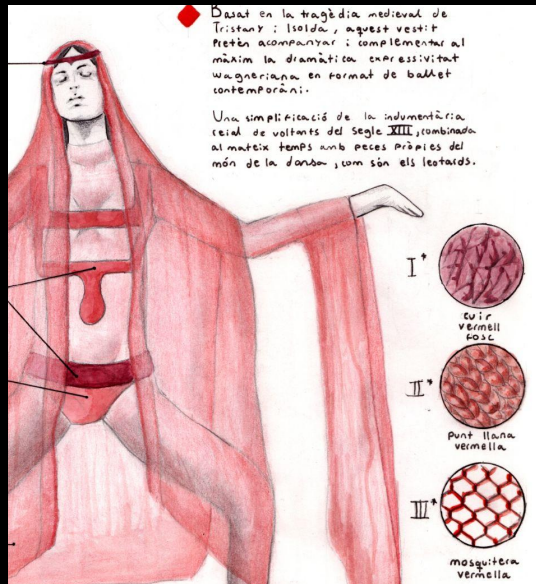 Basat en la tragèdia medieval de
Tristany i Isolda, aquest vestit
Pretén acompanyar i complementar al
màxim la dramàtica expressivitat
wagneriana en format de ballet
contemporàni.
Una simplificació de la indumentària
reial de voltants del segle XIII, combinada
al mateix temps amb peces pròpies del
món de la dansa, com són els leotards.
I*
cuir
vermell
fosc
II*
Punt llana
vermella
III*
mosquitera
vermella